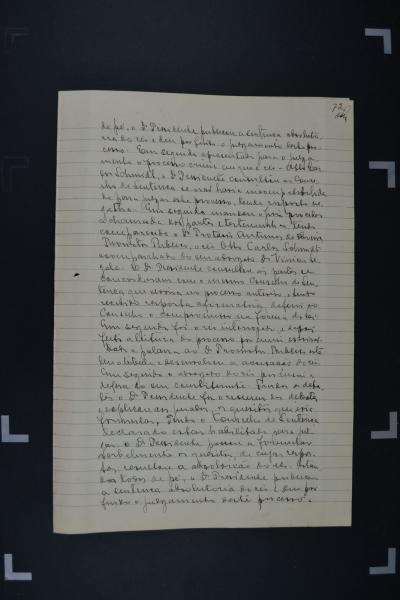 72
de pé, o Dr Presidente publicou a sentença absolutó-
ria do réo e deu por findo o julgamento deste pro-
cesso. Em seguida apresentado para o julga-
mento o processo crime em que é réo - Otto Car-
los Schmidt, o Dr Presidente consultou ao Conse-
lho de Sentença se
para julgar este processo, tendo resposta ne-
gativa. Em seguida mandou o proceder
a chamada das partes e testemunhas, tendo
comparecido o Dr Protasio Antunes de Oliveira
Promotor Publico, o réo Otto Carlos Schmidt
acompanhado do seu advogado Dr
O Dr Presidente consultou as partes se
concordavam com o mesmo Conselho de Sen-
tença que serviu no processo anterior, tendo
recebido resposta afirmativa, deferiu ao
Conselho o compromisso na forma da lei.
Em seguida foi o réo interrogado, e depois
feita a leitura do processo por mim escrivão.
Dada a palavra ao Dr Promotor Publico, este
leu o libello e desenvolveu a accusação do réo.
Em seguida o advogado do réo produziu a
defesa do seu constituinte. Findos os deba-
tes o Dr Presidente fez o resumo dos debates,
e explicou aos jurados os quesitos que
formular. Tendo o Conselho de Sentença
declarado estar habilitado para jul-
gar, o Dr Presidente passou a formular
os quesitos, de cujas respos-
tas, resultou a absolvição do réo.
todos de pé, o Dr Presidente publicou
a sentença absolutoria do réo e deu por
findo o julgamento deste processo.